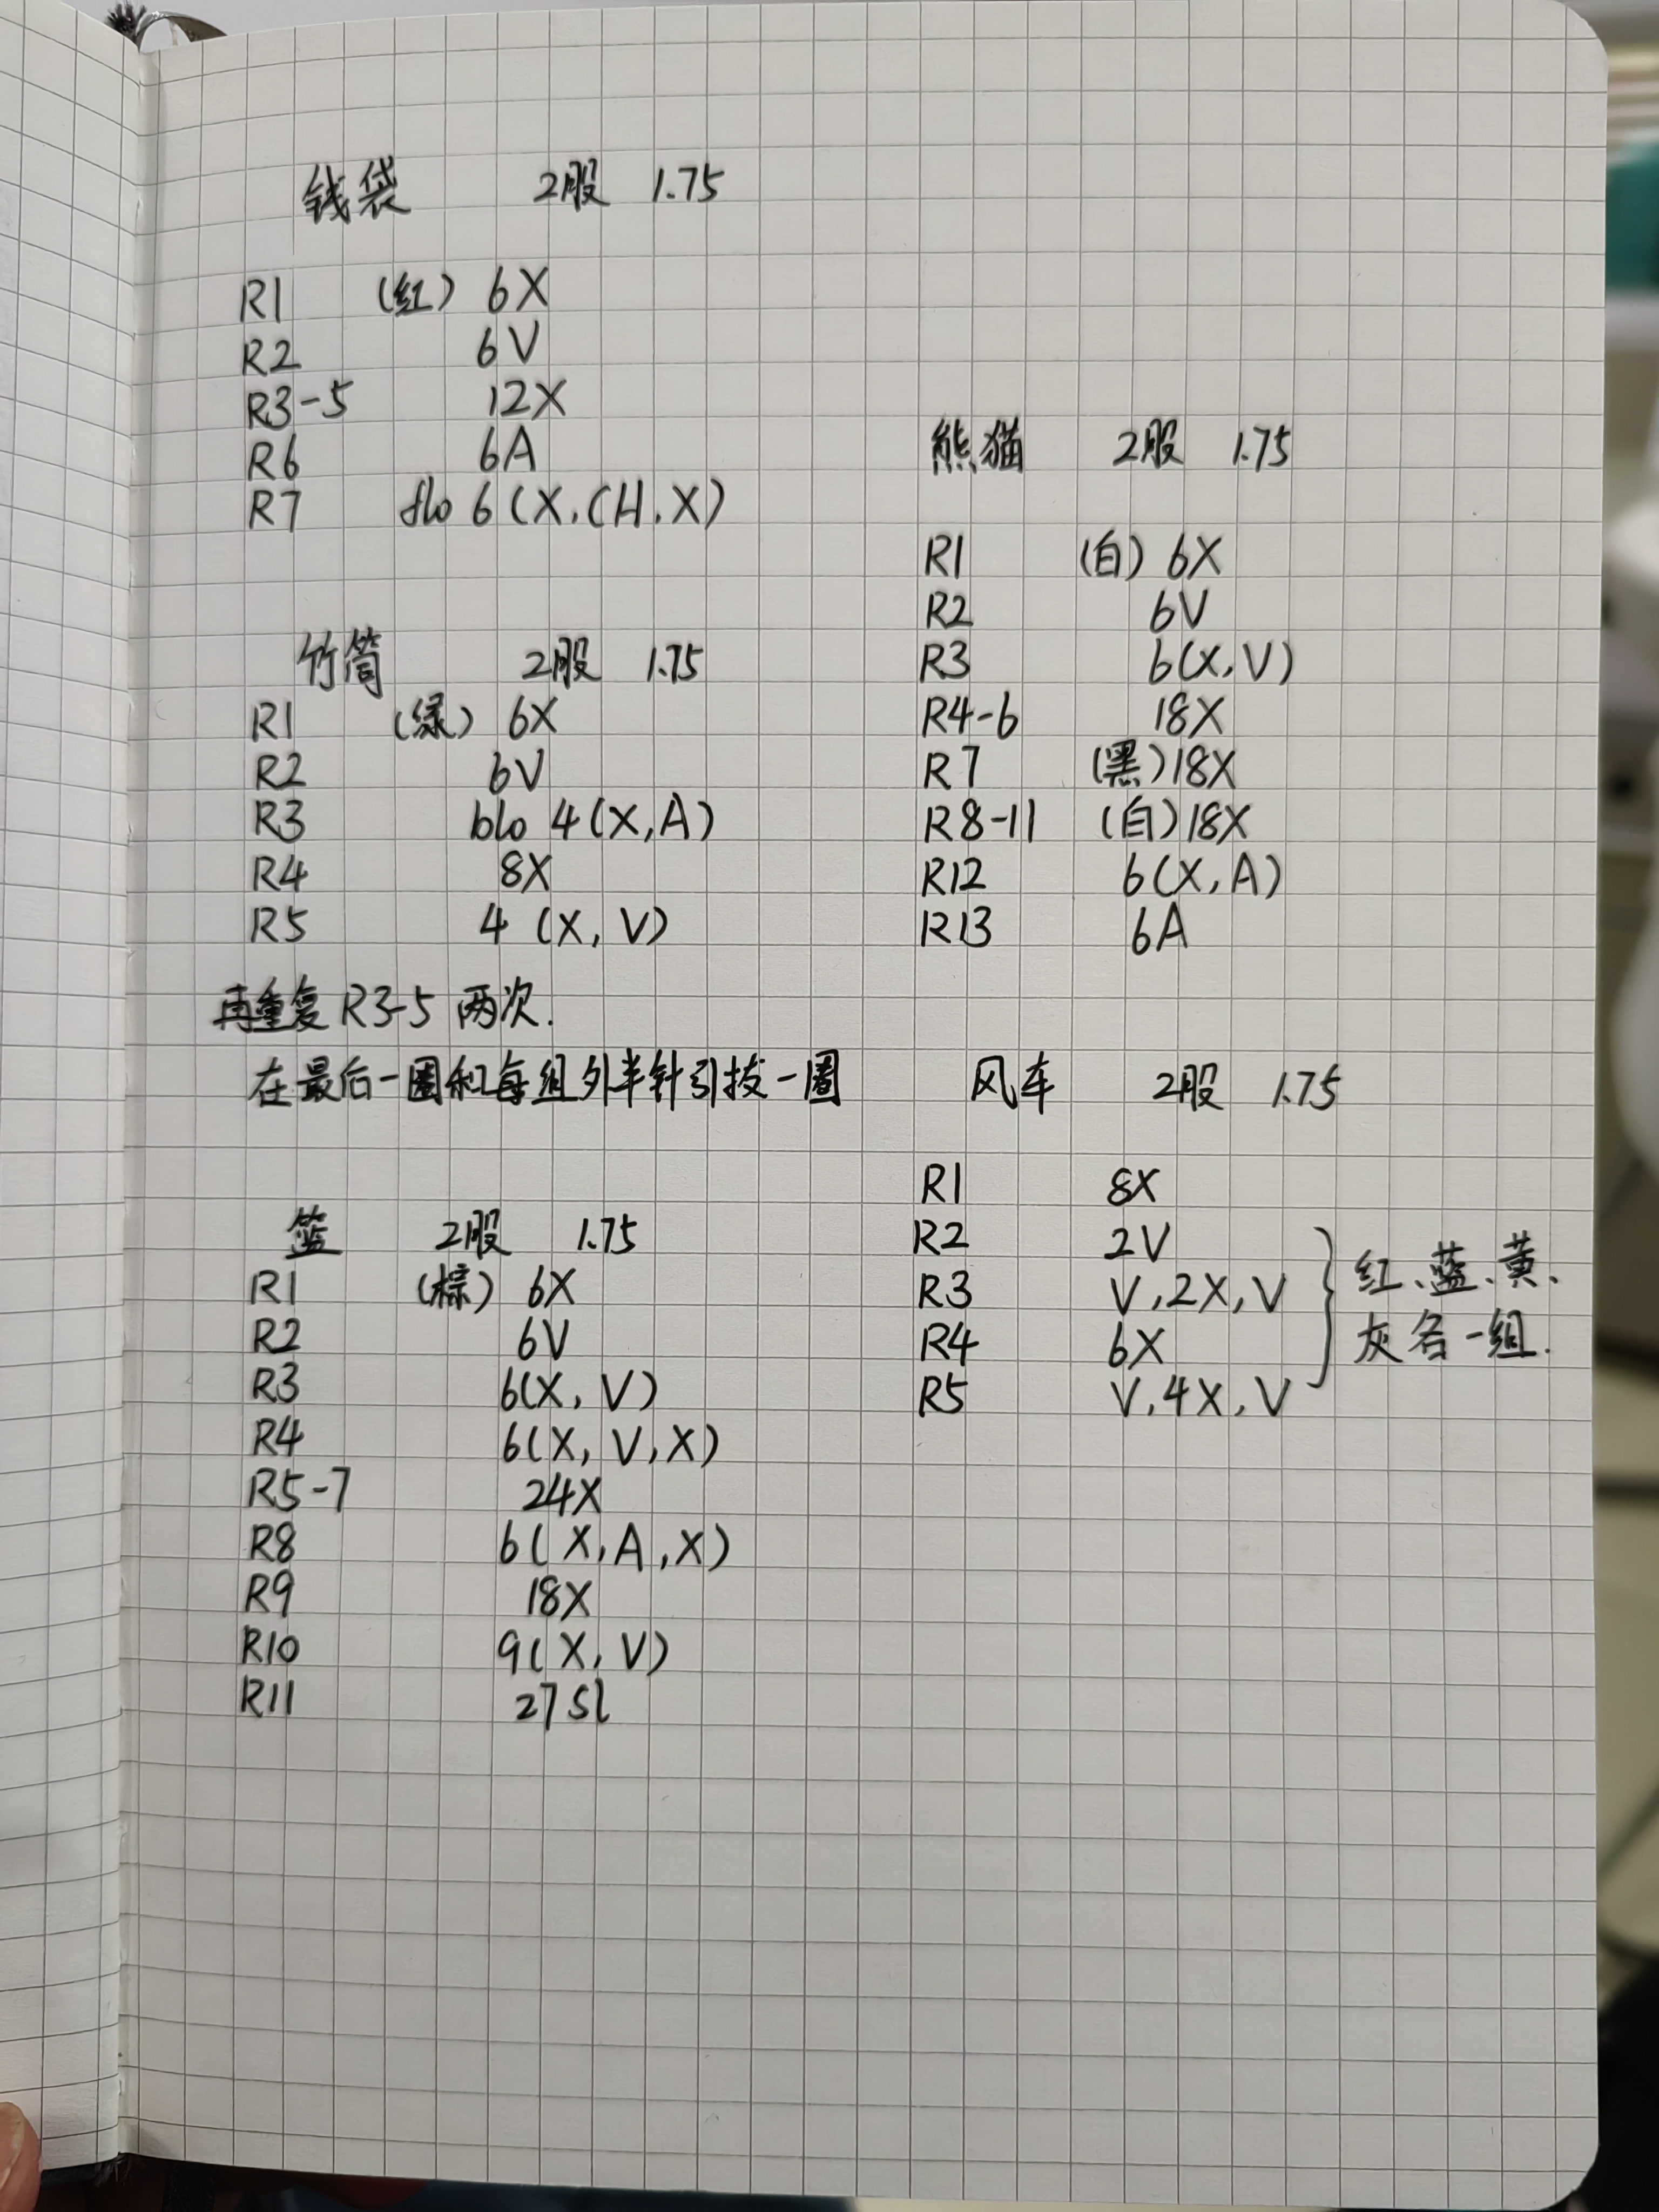 钱袋 2股 1.75
R1 (红) 6X
R2 6V
R3-5 12X
R6 6A
R7 flo 6(X,CH,X)
竹筒 2股 1.75
R1 (绿) 6X
R2 6V
R3 blo 4(X,A)
R4 8X
R5 4(X,V)
再重复R3-5 两次.
在最后一圈和每组外半针引拔一圈
篮 2股 1.75
R1 (棕) 6X
R2 6V
R3 6(X,V)
R4 6(X,V,X)
R5-7 24X
R8 6(X,A,X)
R9 18X
R10 9(X,V)
R11 27sl
熊猫 2股 1.75
R1 (白) 6X
R2 6V
R3 6(X,V)
R4-6 18X
R7 (黑)18X
R8-11 (白)18X
R12 6(X,A)
R13 6A
风车 2股 1.75
R1 8X
R2 2V
R3 V,2X,V
R4 6X
R5 V,4X,V
红、蓝、黄、
灰各一组.